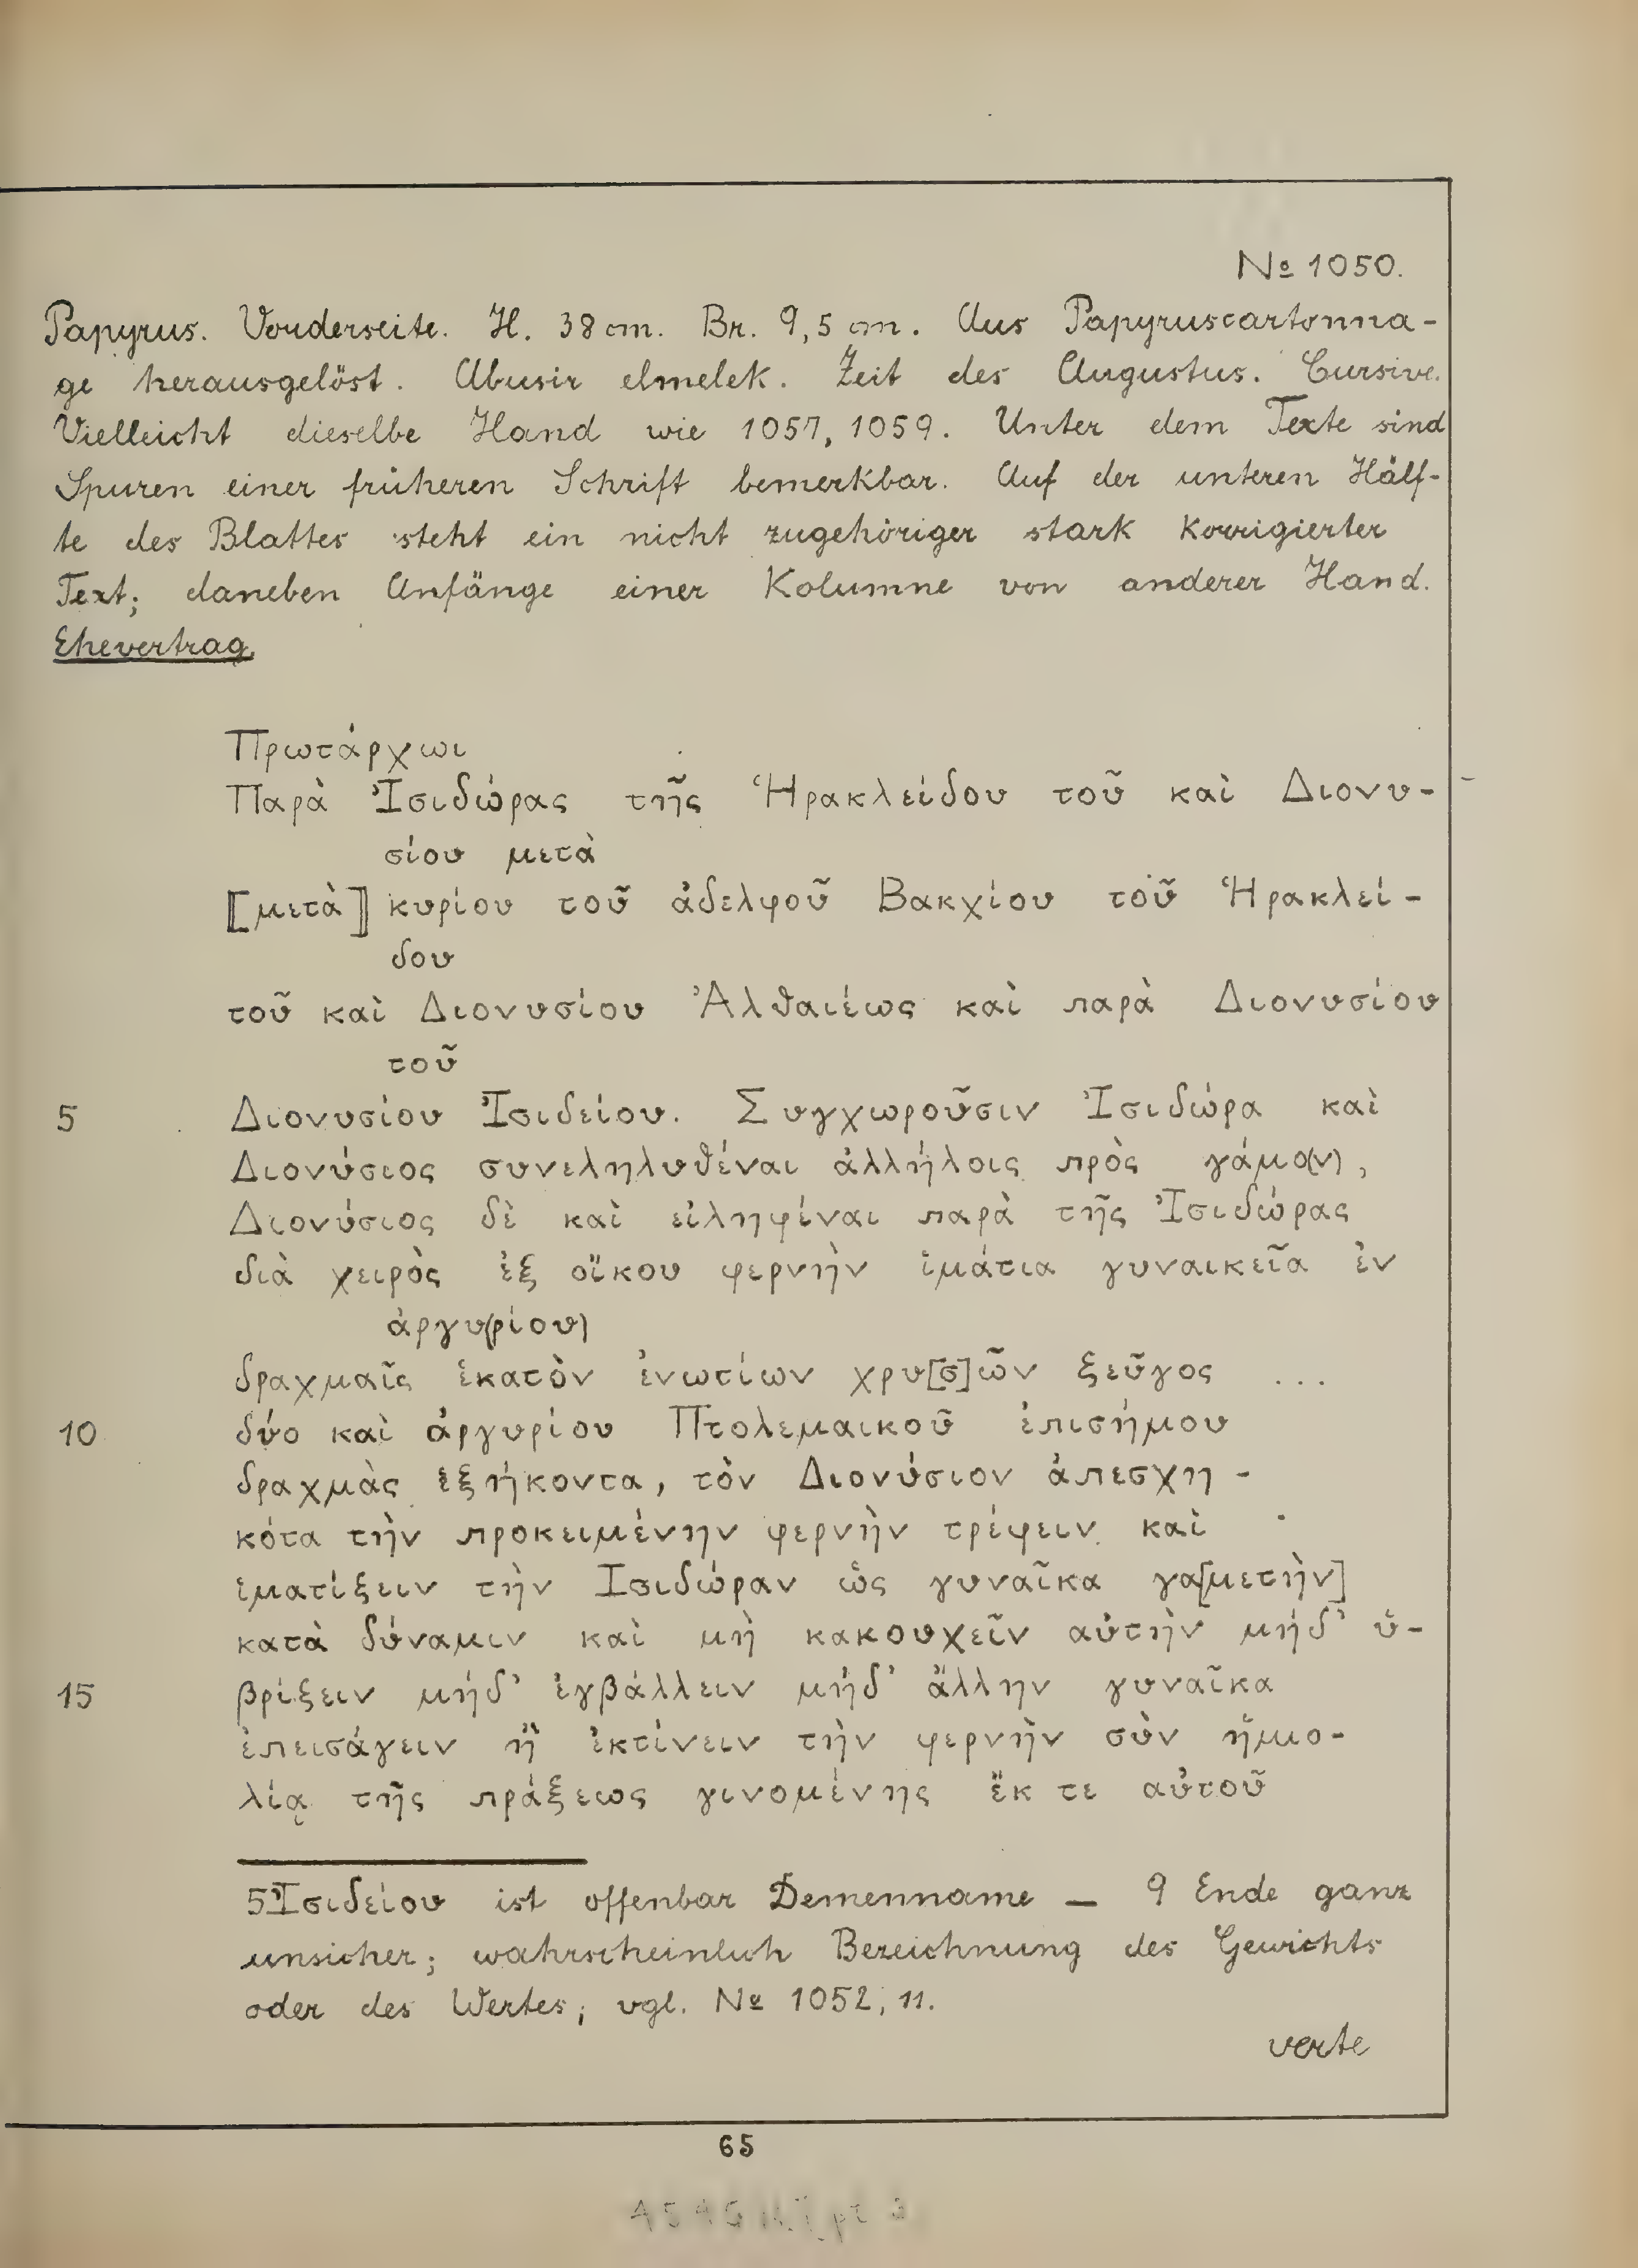 № 1050.
Papyrus. Vorderseite. H. 38 cm. Br. 9,5 cm. Aus Papyruscartonna-
ge herausgelöst. Abusir elmelek. Zeit des Augustus. Cursive.
Vielleicht dieselbe Hand wie 1057, 1059. Unter dem Texte sind
Spuren einer früheren Schrift bemerkbar. Auf der unteren Hälf-
te des Blattes steht ein nicht zugehöriger stark korrigierter
Text; daneben Anfänge einer Kolumne von anderer Hand.
Ehevertrag.
Πρωτάρχωι
Παρὰ Ἰσιδώρας τῆς Ἡρακλείδου τοῦ καὶ Διονυ-
σίου μετὰ
⟦μετὰ⟧ κυρίου τοῦ ἀδελφοῦ Βακχίου τοῦ Ἡρακλεί-
δου
τοῦ καὶ Διονυσίου Ἀλθαιέως καὶ παρὰ Διονυσίου
τοῦ
5 Διονυσίου Ἰσιδείου. Συγχωροῦσιν Ἰσιδώρα καὶ
Διονύσιος συνεληλυθέναι ἀλλήλοις πρὸς γάμο(ν),
Διονύσιος δὲ καὶ εἰληφέναι παρὰ τῆς Ἰσιδώρας
διὰ χειρὸς ἐξ οἴκου φερνὴν ἱμάτια γυναικεῖα ἐν
ἀργυ(ρίου)
δραχμαῖς ἑκατὸν ἐνωτίων χρυ[σ]ῶν ζεῦγος ...
10 δύο καὶ ἀργυρίου Πτολεμαικοῦ ἐπισήμου
δραχμὰς ἑξήκοντα, τὸν Διονύσιον ἀπεσχη-
κότα τὴν προκειμένην φερνὴν τρέφειν καὶ
ἱματίζειν τὴν Ἰσιδώραν ὡς γυναῖκα γα[μετὴν]
κατὰ δύναμιν καὶ μὴ κακουχεῖν αὐτὴν μήδ' ὑ-
15 βρίζειν μήδ' ἐγβάλλειν μήδ' ἄλλην γυναῖκα
ἐπεισάγειν ἢ ἐκτίνειν τὴν φερνὴν σὺν ἡμιο-
λίᾳ τῆς πράξεως γινομένης ἔκ τε αὐτοῦ
5 Ἰσιδείου ist offenbar Demenname — 9 Ende ganz
unsicher; wahrscheinlich Bezeichnung des Gewichts
oder des Wertes; vgl. № 1052, 11.
verte
65